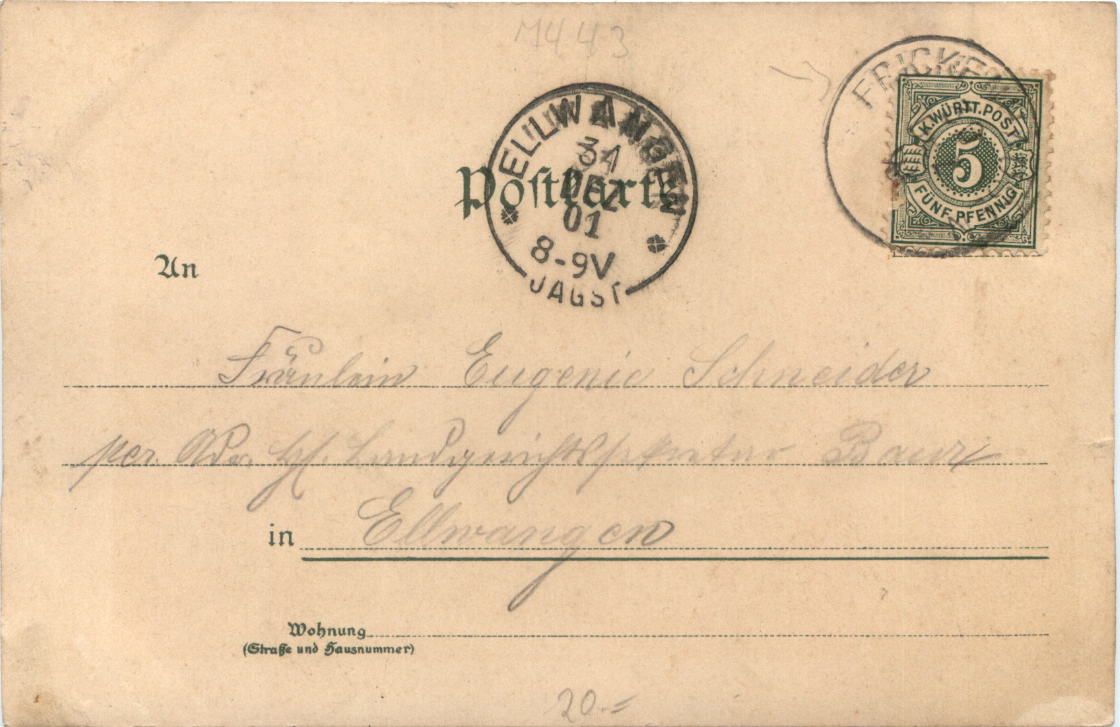 M443
FRICKE
K. WÜRTT. POST
5
FÜNF PFENNIG
ELLWANGEN
31
DEZ
01
8-9V
JAGST
Postkarte
An
Fräulein Eugenie Schneider
per Adr. H. Landgerichtssekretär Baur
in Ellwangen
Wohnung
(Straße und Hausnummer)
20.=